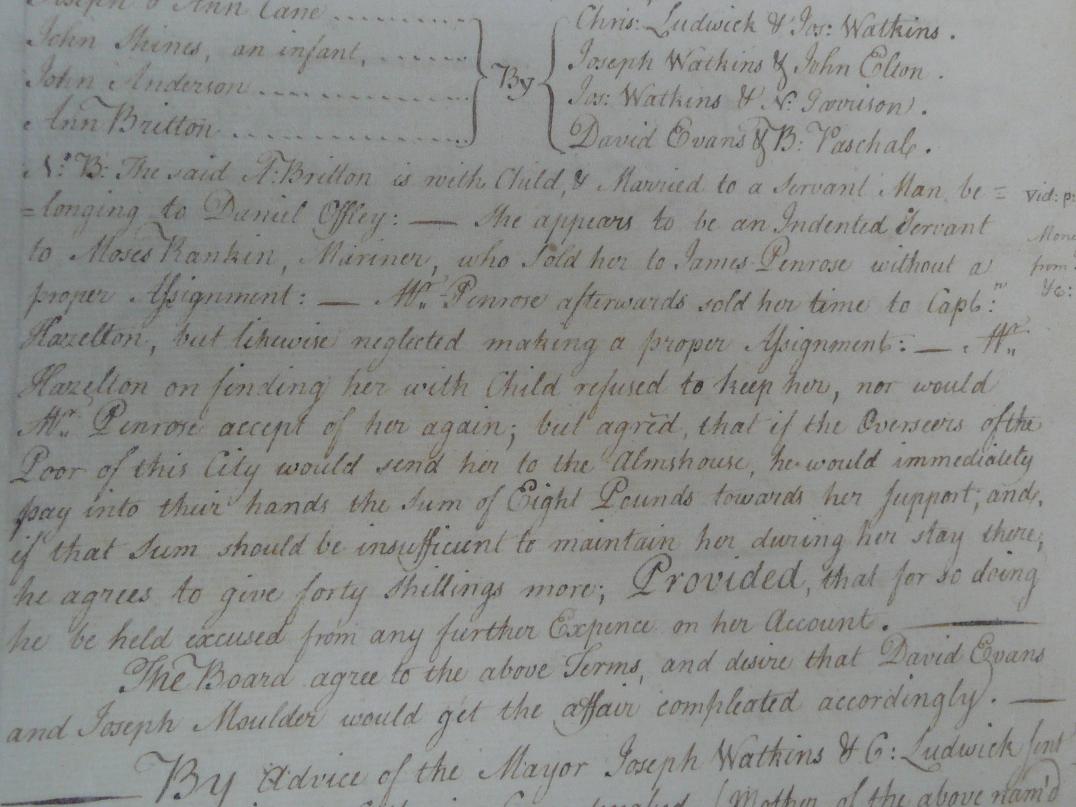 Joseph & Ann Cane ............
John Shines, an infant, ......
John Anderson ................
Ann Britton ..................
By
Chris: Ludwick & Jos: Watkins.
Joseph Watkins & John Elton.
Jos: Watkins & N: Garrison.
David Evans & B: Paschal.
N: B: The said A: Britton is with Child, & Married to a Servant Man be =
=longing to Daniel Offley: — She appears to be an Indented Servant
to Moses Rankin, Mariner, who sold her to James Penrose without a
proper Assignment: — Mr. Penrose afterwards sold her time to Capt:n
Hazelton, but likewise neglected making a proper Assignment: — Mr.
Hazelton on finding her with Child refused to keep her, nor would
Mr. Penrose accept of her again; but agrêd, that if the Overseers of the
Poor of this City would send her to the Almshouse, he would immediately
pay into their hands the Sum of Eight Pounds towards her support; and,
if that Sum should be insufficient to maintain her during her stay there;
he agrees to give forty Shillings more; Provided, that for so doing
he be held excused from any further Expence on her Account. —
The Board agree to the above Terms, and desire that David Evans
and Joseph Moulder would get the affair compleated accordingly. —
By Advice of the Mayor Joseph Watkins & C: Ludwick sent
(Mother of the above nam'd
Vid: p
Mone
from
&c: